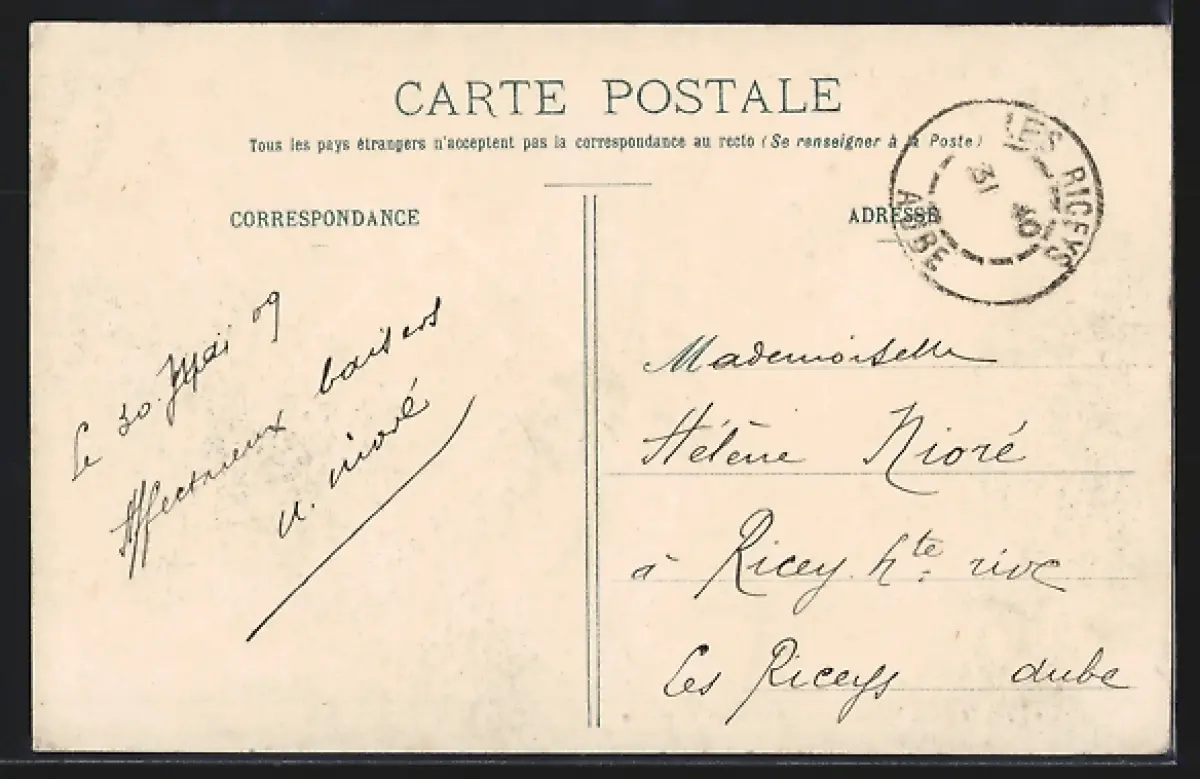 CARTE POSTALE
Tous les pays étrangers n'acceptent pas la correspondance au recto (Se renseigner à la Poste)
CORRESPONDANCE
ADRESSE
LES RICEYS
31
AUBE
Le 30 Mai 09
Affectueux baisers
Nioré
Mademoiselle
Hélène Nioré
à Ricey hte rive
Les Riceys aube